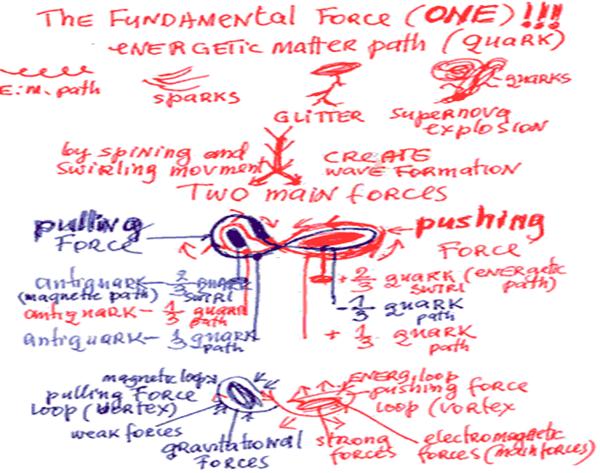 The FUNDAMENTAL FORCE (ONE)!!!
ENERGETIC MATTER path (QUARK)
E.M. path
SPARKS
GLITTER
SUPERNOVA
EXPLOSION
QUARKS
by SPINING and
SWIRLING MOVMENT
CREATE
WAVE FORMATION
TWO main forces
pulling
FORCE
pushing
FORCE
antiquark - 2/3 quark
SWIRL
(magnetic path)
antiquark - 1/3 quark
path
antiquark - 1/3 quark
path
+ 2/3 quark (energetic
SWIRL path)
- 1/3 quark
path
+ 1/3 quark
path
magnetic loop
pulling Force
loop (vortex)
weak forces
gravitational
Forces
ENERG. loop
pushing force
loop (vortex
strong
forces
electromagnetic
forces (main forces)